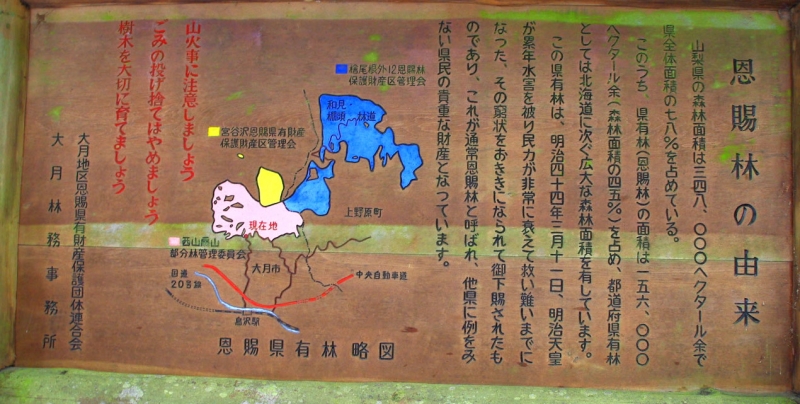 恩賜林の由来
山梨県の森林面積は三四八、〇〇〇ヘクタール余で
県全体面積の七八%を占めている。
このうち、県有林(恩賜林)の面積は一五六、〇〇〇
ヘクタール余(森林面積の四五%)を占め、都道府県有林
としては北海道に次ぐ広大な森林面積を有しています。
この県有林は、明治四十四年三月十一日、明治天皇
が累年水害を被り民力が非常に衰えて救い難いまでに
なった、その窮状をおききになられて御下賜されたも
のであり、これが通常恩賜林と呼ばれ、他県に例をみ
ない県民の貴重な財産となっています。
外12恩賜林
保護財産区管理会
和見
林道
宮谷沢恩賜県有財産
保護財産区管理会
上野原町
現在地
部分林管理委員会
大月市
国道
20号線
中央自動車道
鳥沢駅
恩賜県有林略図
山火事に注意しましょう
ごみの投げ捨てはやめましょう
樹木を大切に育てましょう
大月地区恩賜県有財産保護団体連合会
大月林務事務所